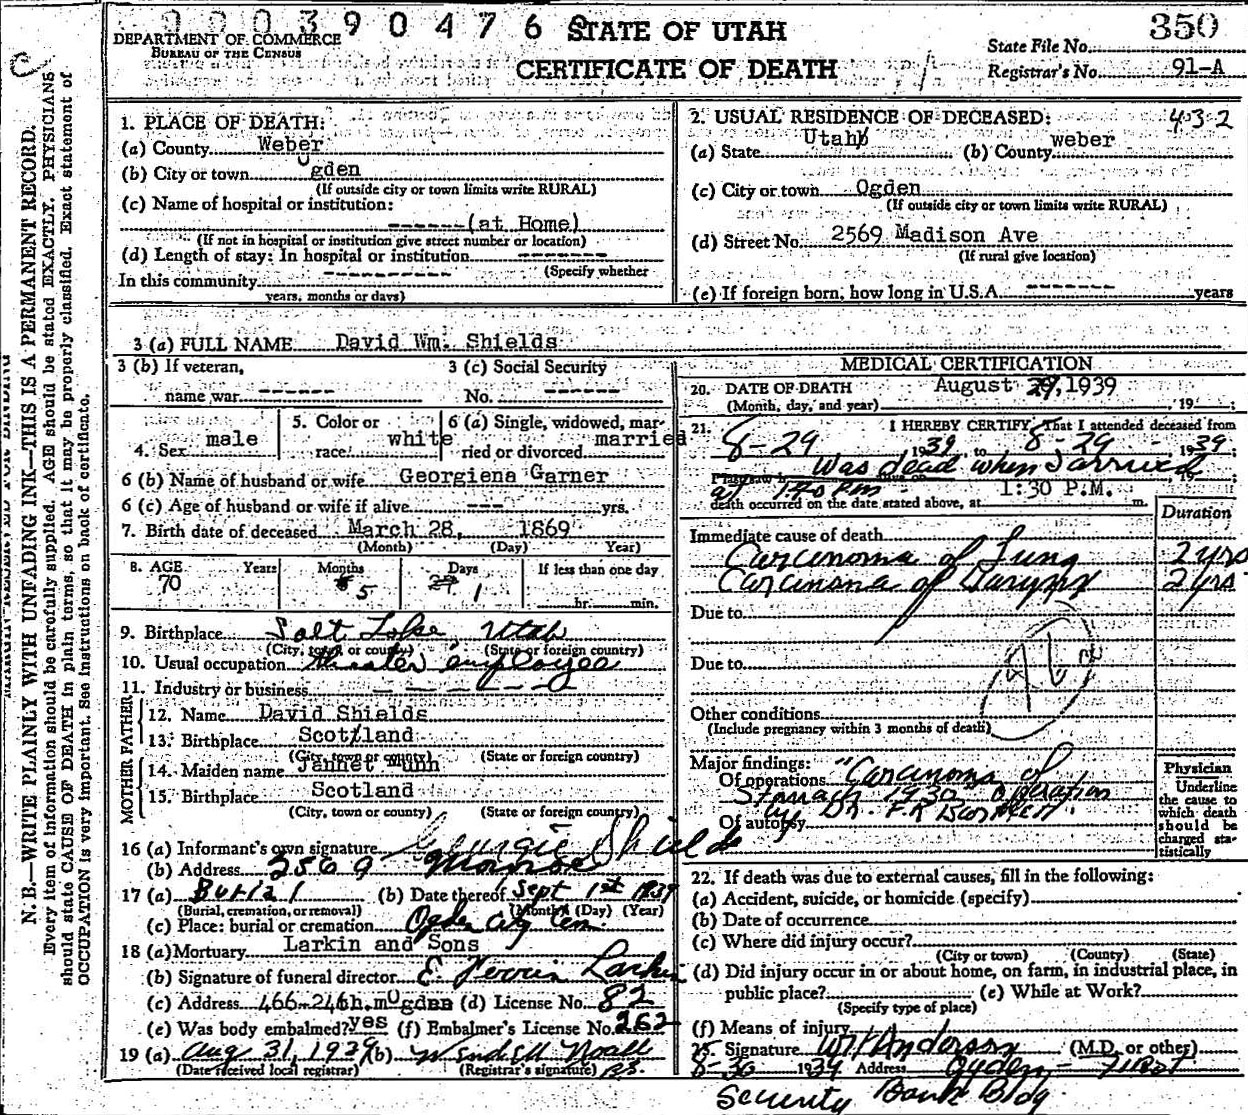 0 0 0 3 9 0 4 7 6
STATE OF UTAH
350
DEPARTMENT OF COMMERCE
BUREAU OF THE CENSUS
CERTIFICATE OF DEATH
State File No.
Registrar's No. 91-A
N. B.—WRITE PLAINLY WITH UNFADING INK—THIS IS A PERMANENT RECORD.
Every item of information should be carefully supplied. AGE should be stated EXACTLY. PHYSICIANS
should state CAUSE OF DEATH in plain terms, so that it may be properly classified. Exact statement of
OCCUPATION is very important. See instructions on back of certificate.
1. PLACE OF DEATH:
(a) County Weber
(b) City or town Ogden
(If outside city or town limits write RURAL)
(c) Name of hospital or institution:
------(at Home)
(If not in hospital or institution give street number or location)
(d) Length of stay: In hospital or institution -------
(Specify whether
In this community ----------
years, months or days)
2. USUAL RESIDENCE OF DECEASED: 432
(a) State Utah (b) County weber
(c) City or town Ogden
(If outside city or town limits write RURAL)
(d) Street No. 2569 Madison Ave
(If rural give location)
(e) If foreign born, how long in U.S.A. ------- years
3 (a) FULL NAME David Wm. Shields
3 (b) If veteran,
name war ------
3 (c) Social Security
No. ------
4. Sex male
5. Color or
race white
6 (a) Single, widowed, mar-
ried or divorced married
6 (b) Name of husband or wife Georgiena Garner
6 (c) Age of husband or wife if alive --- yrs.
7. Birth date of deceased March 28, 1869
(Month) (Day) Year)
8. AGE Years Months Days If less than one day
70 5 1
hr. min.
9. Birthplace Salt Lake, Utah
(City, town, or county) (State or foreign country)
10. Usual occupation theater employee
11. Industry or business -------
FATHER
12. Name David Shields
13. Birthplace Scotland
(City, town or county) (State or foreign country)
MOTHER
14. Maiden name Jannet Munn
15. Birthplace Scotland
(City, town or county) (State or foreign country)
16 (a) Informant's own signature Georgie Shields
(b) Address 2569 Monroe
17 (a) Burial (b) Date thereof Sept 1st 1939
(Burial, cremation, or removal) (Month) (Day) (Year)
(c) Place: burial or cremation Ogden City Cem.
18 (a) Mortuary Larkin and Sons
(b) Signature of funeral director Larkin
(c) Address 466-24th, Ogden (d) License No. 82
(e) Was body embalmed? yes (f) Embalmer's License No. 262
19 (a) Aug 31, 1939 (b) Wendell Noall
(Date received local registrar) (Registrar's signature)
MEDICAL CERTIFICATION
20. DATE OF DEATH August 29, 1939
(Month, day, and year) , 19 ;
21. I HEREBY CERTIFY, That I attended deceased from
8-29 1939 to 8-29 - 1939;
Was dead when I arrived
at 1:40 PM - 1:30 P.M.
death occurred on the date stated above, at m.
Duration
Immediate cause of death
Carcinoma of Lung 2 yrs
Carcinoma of Larynx 2 yrs
Due to
Due to
Other conditions
(Include pregnancy within 3 months of death)
Major findings:
Of operations "Carcinoma of
Stomach 1930 operation
by Dr. F.R.
Of autopsy
Physician
Underline
the cause to
which death
should be
charged sta-
tistically
22. If death was due to external causes, fill in the following:
(a) Accident, suicide, or homicide (specify)
(b) Date of occurrence
(c) Where did injury occur?
(City or town) (County) (State)
(d) Did injury occur in or about home, on farm, in industrial place, in
public place? (e) While at Work?
(Specify type of place)
(f) Means of injury
23. Signature Anderson (M.D. or other)
8-30 1939 Address Ogden - First
Security Bank Bldg.